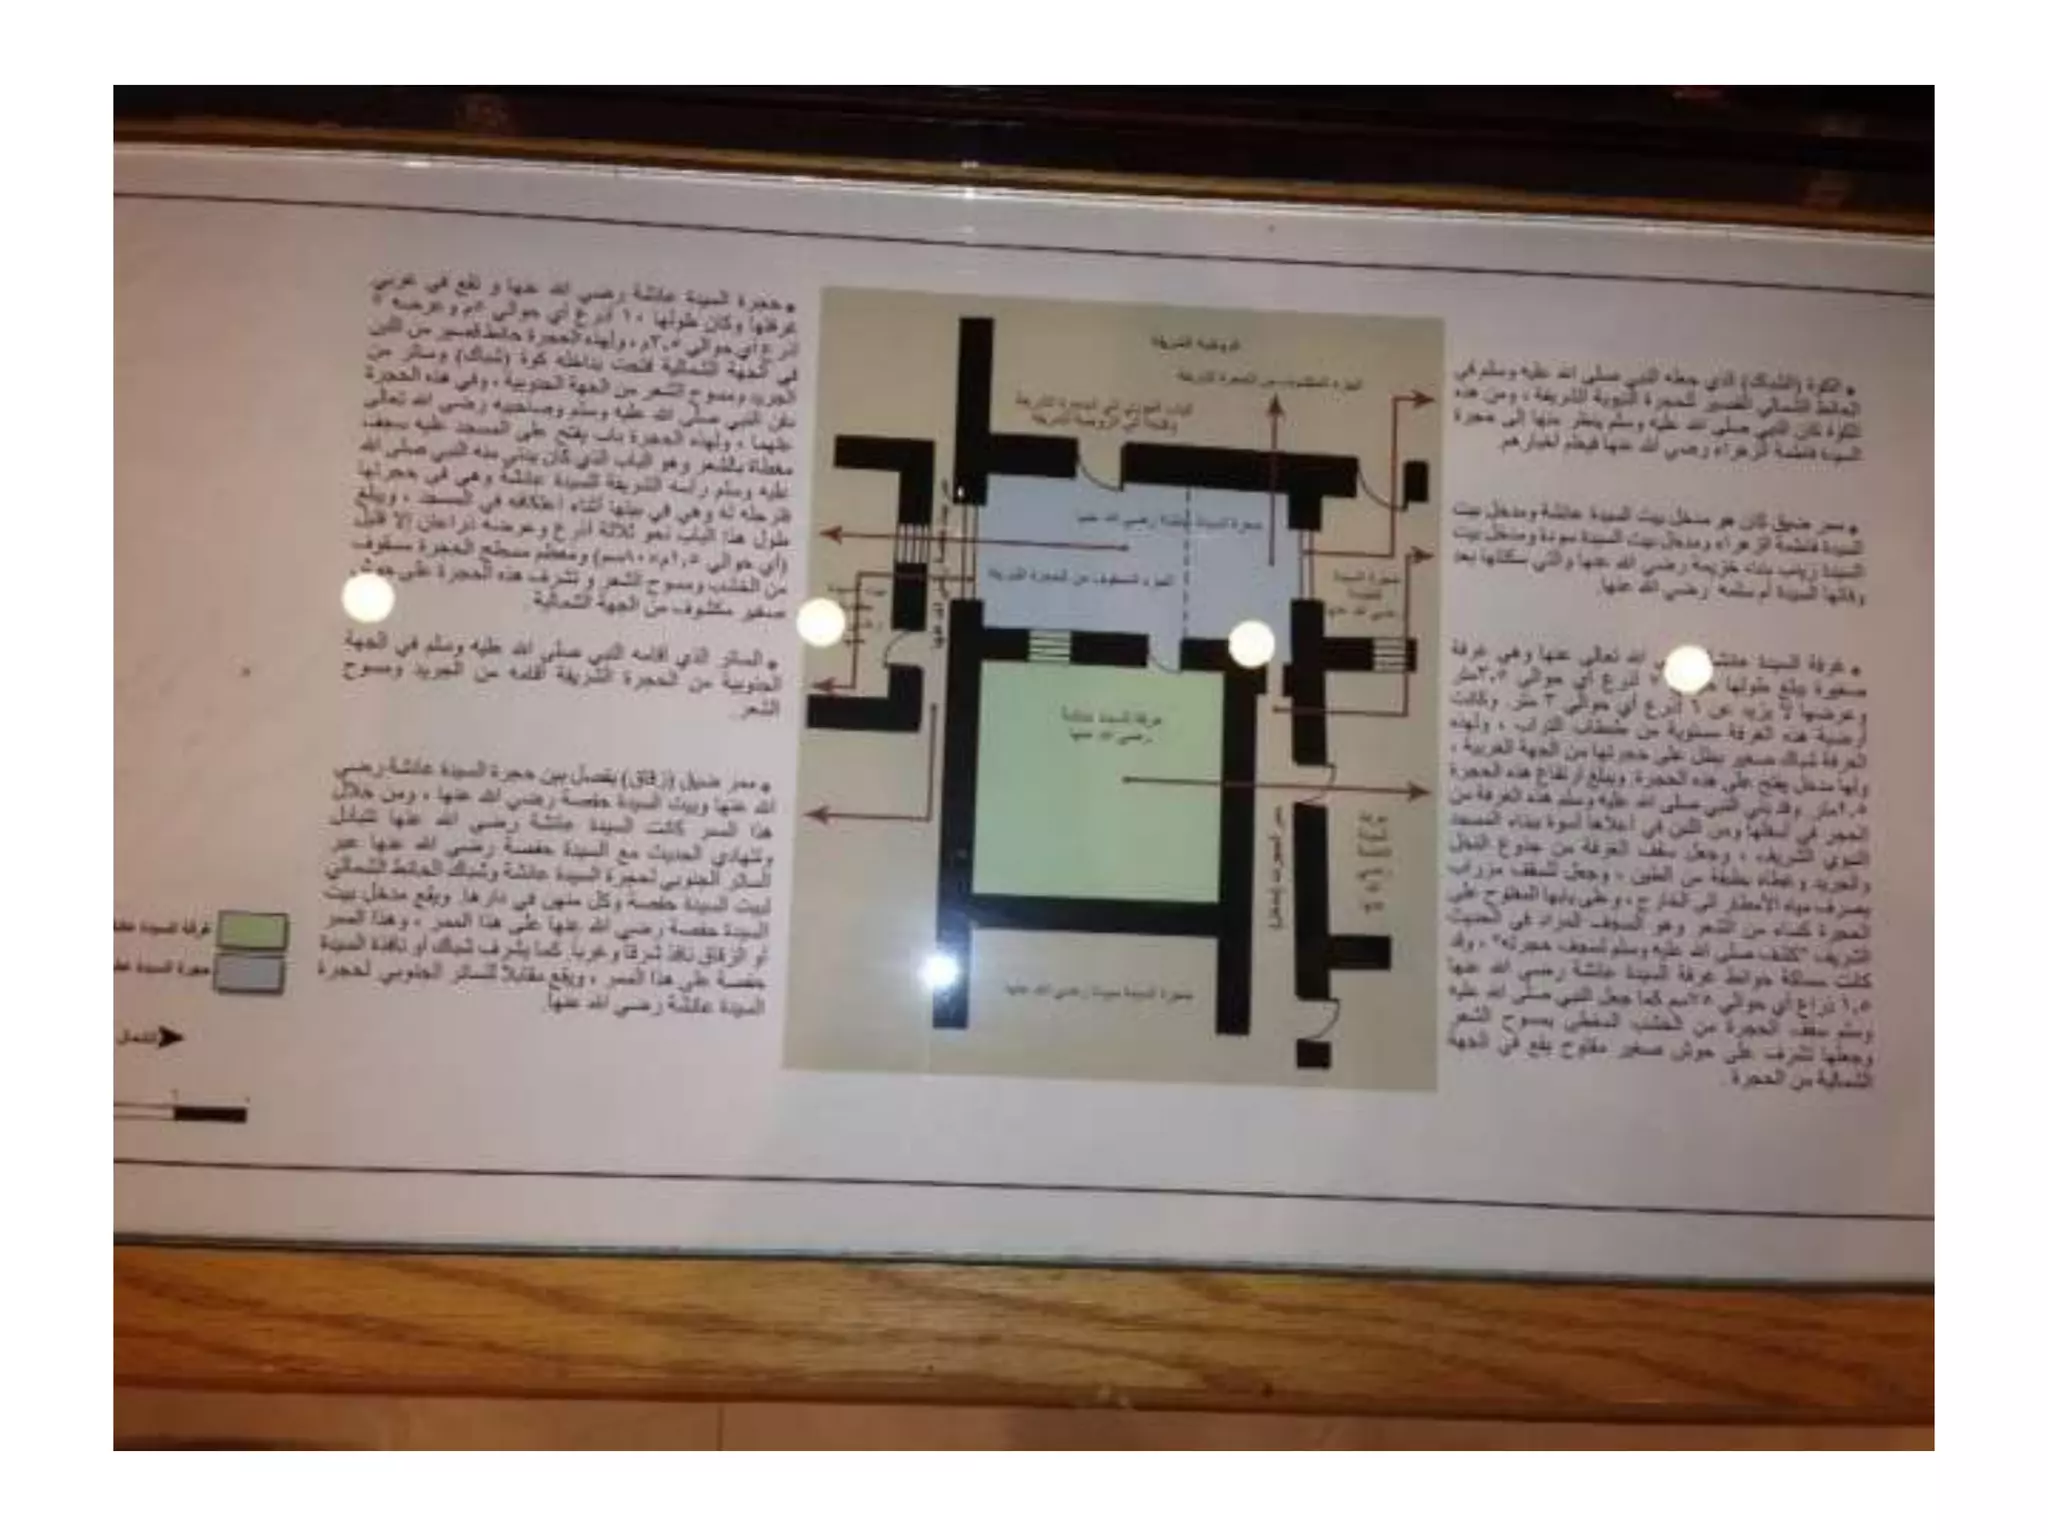 * الكوة (الشباك) الذي جعله النبي صلى الله عليه وسلم في
الحائط الشمالي القصير للحجرة النبوية الشريفة ، ومن هذه
الكوة كان النبي صلى الله عليه وسلم ينظر منها إلى حجرة
السيدة فاطمة الزهراء رضي الله عنها فيعلم أخبارهم.
* ممر ضيق كان هو مدخل بيت السيدة عائشة ومدخل بيت
السيدة فاطمة الزهراء ومدخل بيت السيدة سودة ومدخل بيت
السيدة زينب بنت خزيمة رضي الله عنها والتي سكنتها بعد
وفاتها السيدة أم سلمة رضي الله عنها.
* غرفة السيدة عائشة الله تعالى عنها وهي غرفة
صغيرة يبلغ طولها أذرع أي حوالي ٣,٥متر
وعرضها لا يزيد عن ٦ أذرع أي حوالي ٣ متر. وكانت
أرضية هذه الغرفة مستوية من التراب ، ولهذه
الغرفة شباك صغير يطل على حجرتها من الجهة الغربية ،
ولها مدخل يفتح على هذه الحجرة. ويبلغ ارتفاع هذه الحجرة
٢,٥متر. وقد بنى النبي صلى الله عليه وسلم هذه الغرفة من
الحجر في أسفلها ومن اللبن في أعلاها أسوة ببناء المسجد
النبوي الشريف ، وجعل سقف الغرفة من جذوع النخل
والجريد وغطاه بطبقة من الطين ، وجعل للسقف مزراب
يصرف مياه الأمطار إلى الخارج ، وعلى بابها المفتوح على
الحجرة كساء من الشعر وهو السجف المراد في الحديث
الشريف "كشف صلى الله عليه وسلم سجف حجرته" ، وقد
كانت سماكة حوائط غرفة السيدة عائشة رضي الله عنها
١,٥ ذراع أي حوالي ٧٥سم كما جعل النبي صلى الله عليه
وسلم سقف الحجرة من الخشب المغطى بمسوح الشعر
وجعلها تشرف على حوش صغير مفتوح يقع في الجهة
الشمالية من الحجرة.
الروضة الشريفة
الجزء المكشوف من الحجرة الشريفة
الباب المؤدي إلى الحجرة الشريفة
إلى الروضة الشريفة
حجرة السيدة عائشة رضي الله عنها
الجزء المسقوف من الحجرة الشريفة
حجرة السيدة
فاطمة
رضي الله عنها
غرفة السيدة عائشة
رضي الله عنها
حجرة السيدة سودة رضي الله عنها
* حجرة السيدة عائشة رضي الله عنها و تقع في غربي
غرفتها وكان طولها ١٠ أذرع أي حوالي ٥م وعرضه ٧
أذرع أي حوالي ٣,٥م ، ولهذه الحجرة حائط قصير من اللبن
في الجهة الشمالية فتحت بداخله كوة (شباك) وساتر من
الجريد ومسوح الشعر من الجهة الجنوبية ، وفي هذه الحجرة
دفن النبي صلى الله عليه وسلم وصاحبيه رضي الله تعالى
عنهما ، ولهذه الحجرة باب يفتح على المسجد عليه سجف
مغطاة بالشعر وهو الباب الذي كان يدني منه النبي صلى الله
عليه وسلم رأسه الشريفة للسيدة عائشة وهي في حجرتها
فترجله له وهي في بيتها أثناء اعتكافه في المسجد ، ويبلغ
طول هذا الباب نحو ثلاثة أذرع وعرضه ذراعان إلا قليل
(أي حوالي ١,٥م×١٠سم) ومعظم مسطح الحجرة مسقوف
من الخشب ومسوح الشعر وتشرف هذه الحجرة على حوش
صغير مكشوف من الجهة الشمالية.
* الساتر الذي أقامه النبي صلى الله عليه وسلم في الجهة
الجنوبية من الحجرة الشريفة أقامه من الجريد ومسوح
الشعر.
* ممر ضيق (زقاق) يفصل بين حجرة السيدة عائشة رضي
الله عنها وبيت السيدة حفصة رضي الله عنها ، ومن خلال
هذا الممر كانت السيدة عائشة رضي الله عنها تتبادل
وتتهادى الحديث مع السيدة حفصة رضي الله عنها عبر
الساتر الجنوبي لحجرة السيدة عائشة وشباك الحائط الشمالي
لبيت السيدة حفصة وكل منهن في دارها. ويقع مدخل بيت
السيدة حفصة رضي الله عنها على هذا الممر ، وهذا الممر
أو الزقاق نافذ شرقاً وغرباً. كما يشرف شباك أو نافذة السيدة
حفصة على هذا الممر ، ويقع مقابلاً للساتر الجنوبي لحجرة
السيدة عائشة رضي الله عنها.
غرفة السيدة
حجرة السيدة
الشمال